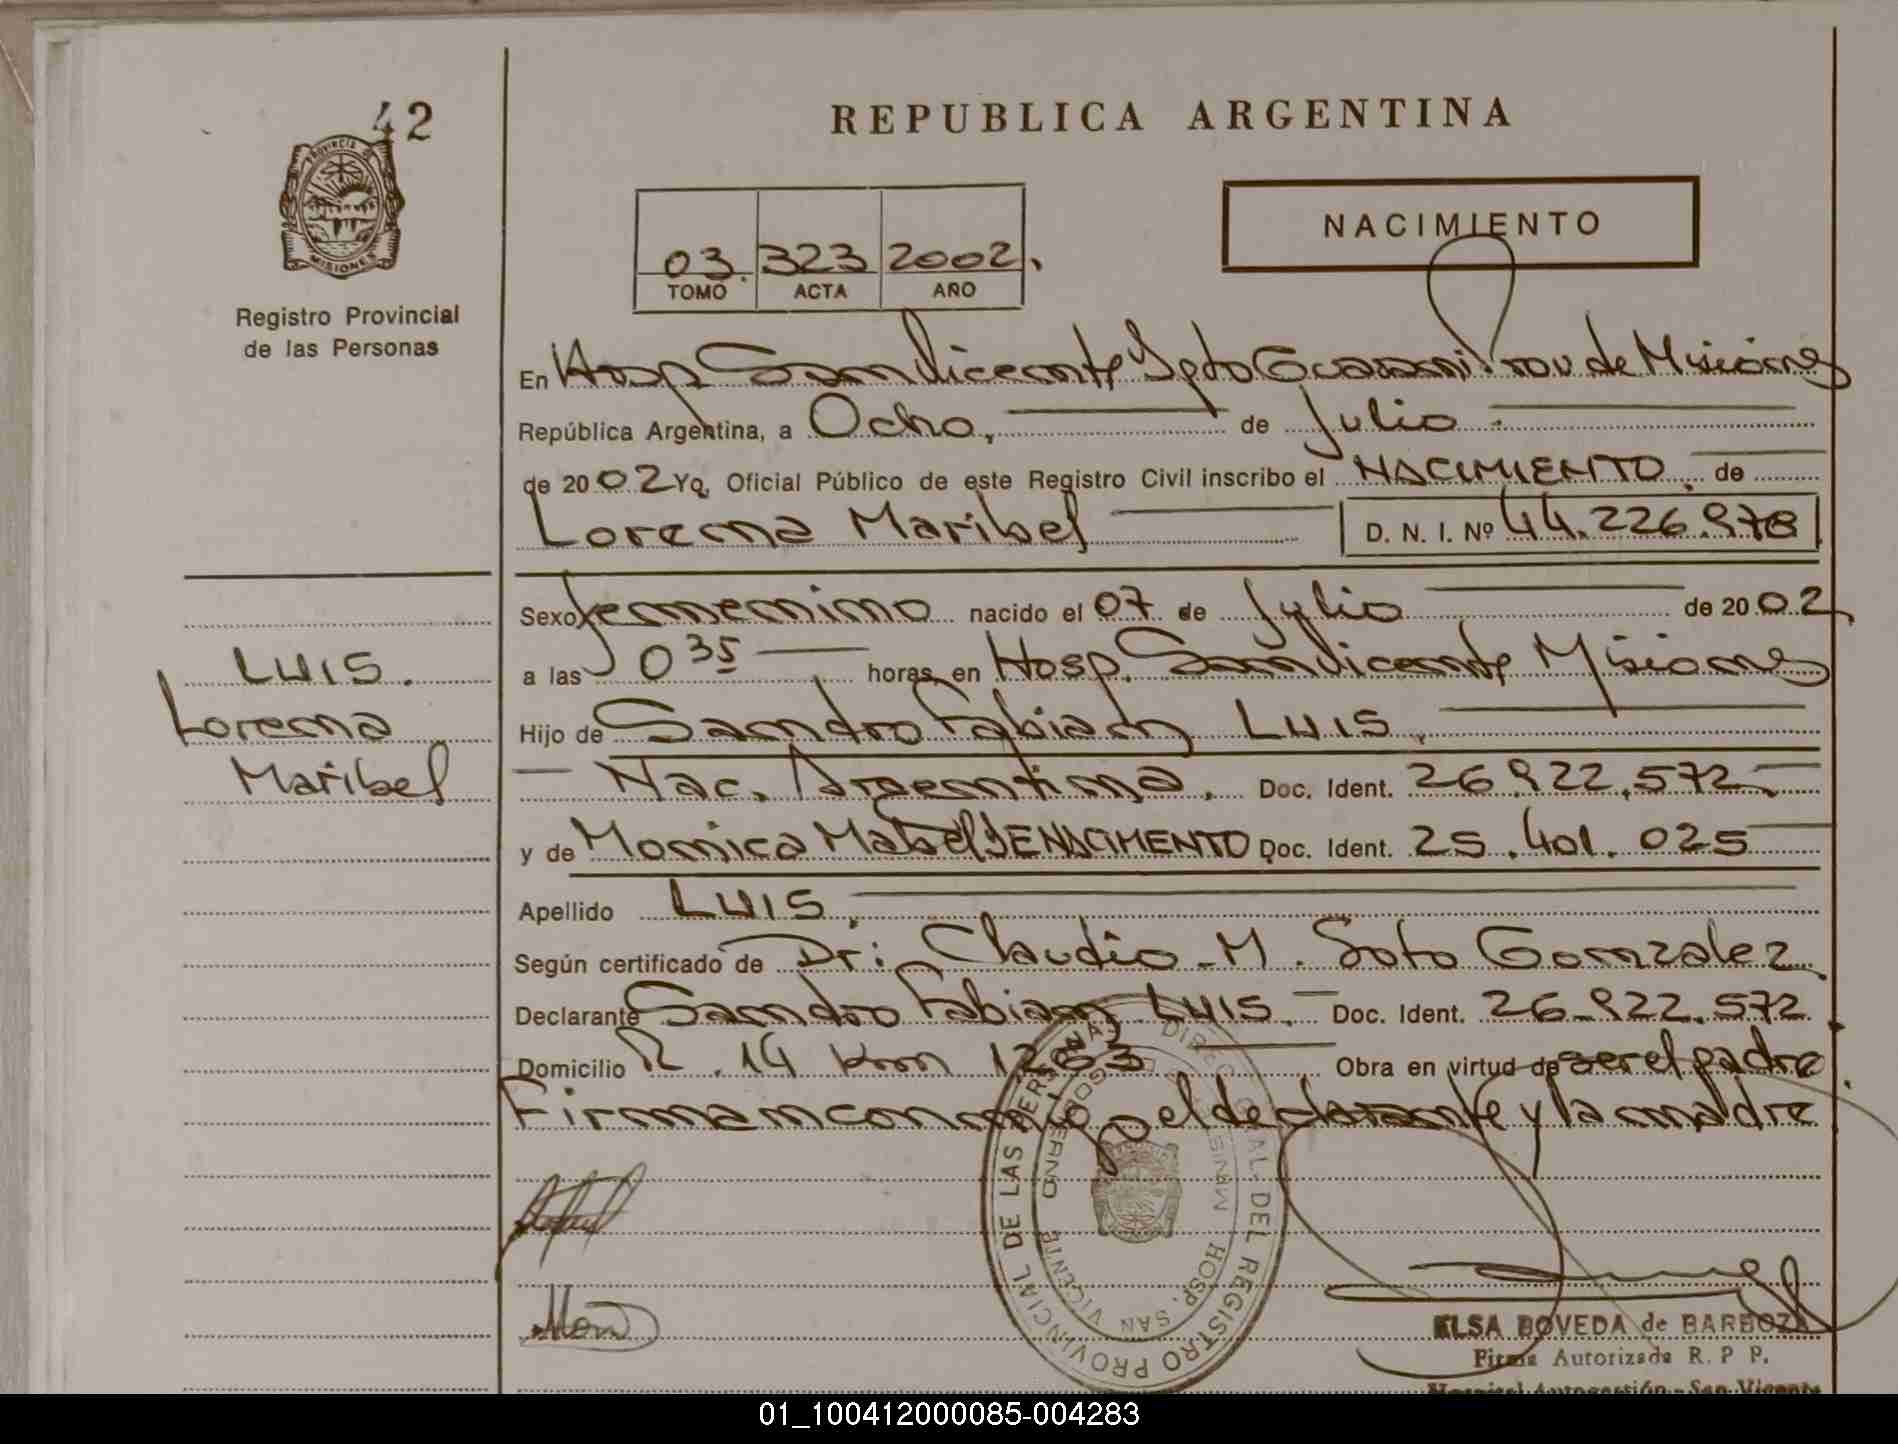 42
PROVINCIA DE
MISIONES
Registro Provincial
de las Personas
REPUBLICA ARGENTINA
03. 323 2002.
TOMO ACTA AÑO
NACIMIENTO
En Hosp San Vicente Dpto Guarani Prov de Misiones
República Argentina, a Ocho, de Julio
de 2002 Yo, Oficial Público de este Registro Civil inscribo el NACIMIENTO. de
Lorena Maribel D. N. I. Nº 44.226.978
Sexo femenino nacido el 07 de Julio de 2002
a las 0 35 horas, en Hosp. San Vicente Misiones
Hijo de Sandro Fabian LUIS.
Nac. Argentina. Doc. Ident. 26.822.572
y de Monica Mabel DENACIMENTO Doc. Ident. 25.401.025
Apellido LUIS.
Según certificado de Dr: Claudio M. Soto Gonzalez
Declarante Sandro Fabian LUIS. Doc. Ident. 26.822.572
Domicilio R. 14 Km 1263 Obra en virtud de ser el padre
Firman conmigo el declarante y la madre
LUIS.
Lorena
Maribel
DE LAS PERSONAS
PROVINCIAL DEL REGISTRO PROVINCIAL
GOBIERNO
HOSP. SAN VICENTE
ELSA BOVEDA de BARBOZA
Firma Autorizada R. P P.
Hospital Autogestión - San Vicente
01_100412000085-004283